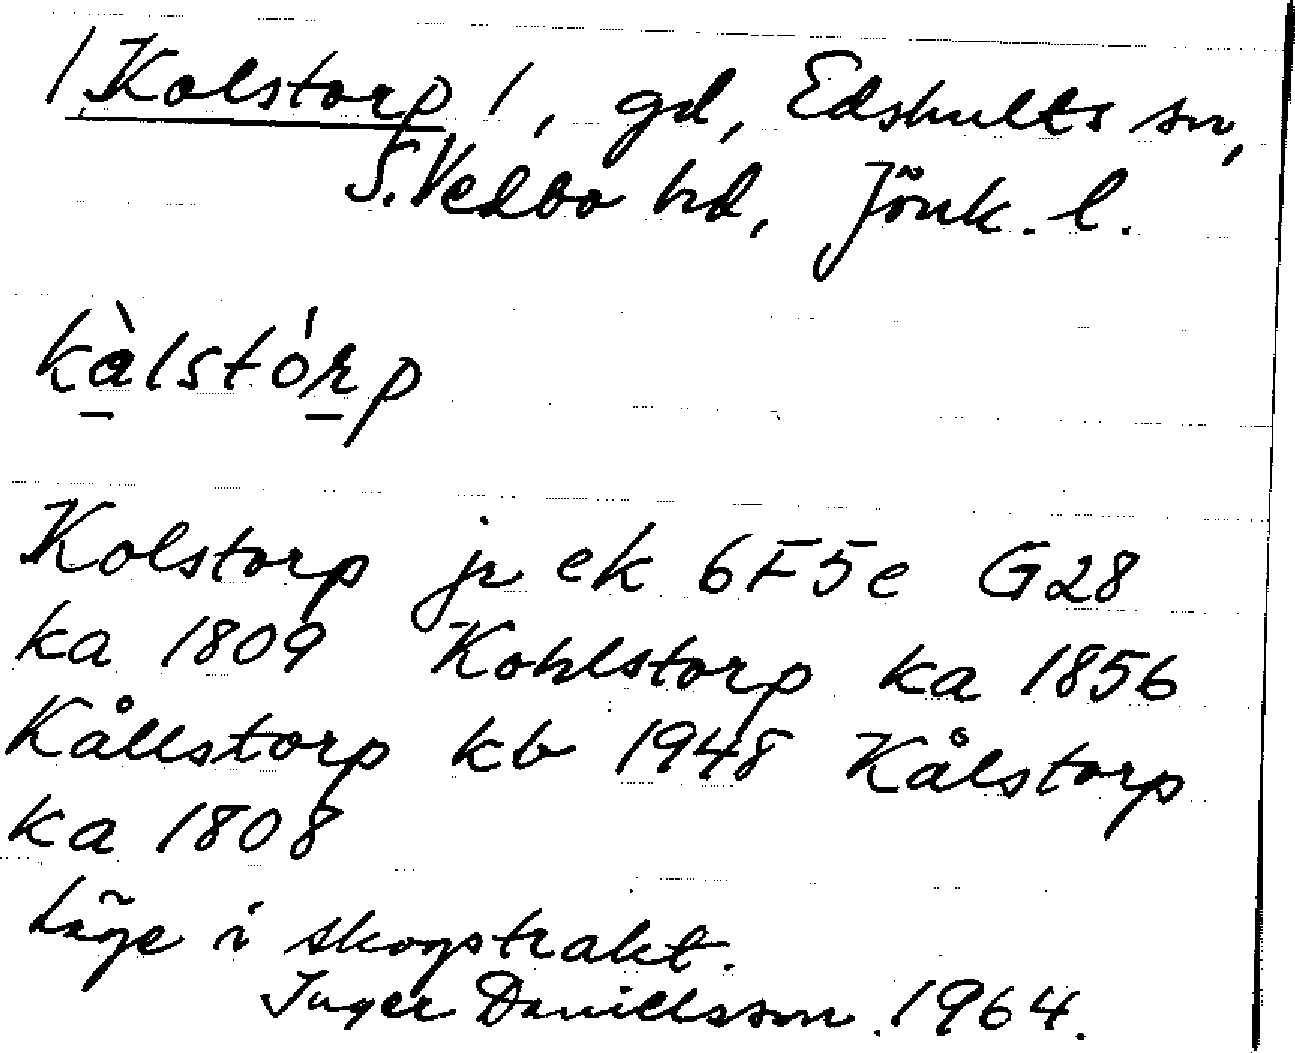 / Kolstorp /, gd, Edshults sn,
S. Vedbo hd, Jönk. l.
kàlstórp
Kolstorp jr ek 6F5e G28
ka 1809 Kohlstorp ka 1856
Kållstorp kb 1948 Kålstorp
ka 1808
Läge i skogstrakt.
Inger Daniellsson. 1964.